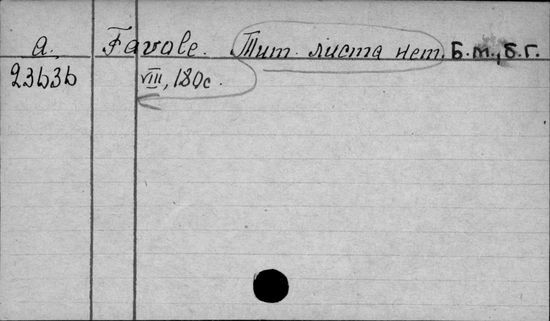 a. Favole. Тит. листа нет. Б.м., б.г.
23b3b VIII, 180с.